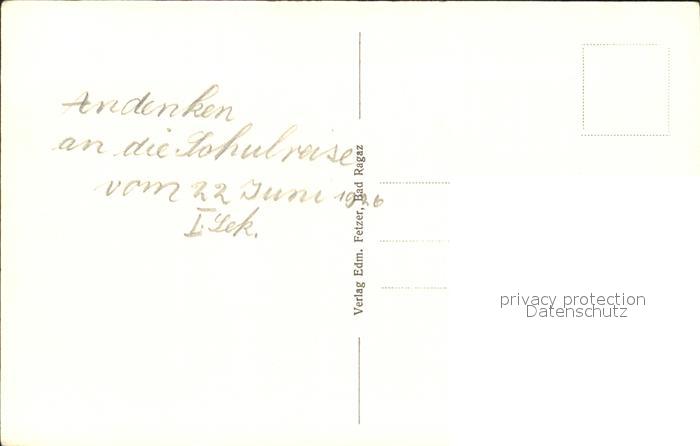 Andenken
an die Schulreise
vom 22 Juni
I. Sek.
Verlag Edm. Fetzer, Bad Ragaz
privacy protection
Datenschutz